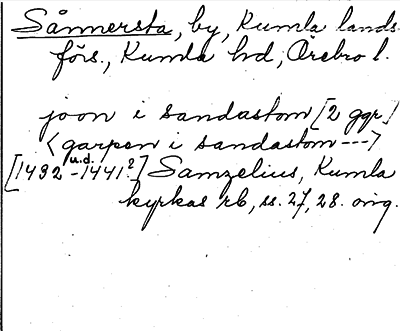 Sånnersta, by, Kumla lands-
förs., Kumla hd, Örebro l.
joon i sandastom [2 ggr]
<garpen i sandastom --->
[1432 u.d. -1441?] Samzelius, Kumla
kyrkas rb, ss. 27, 28. orig.